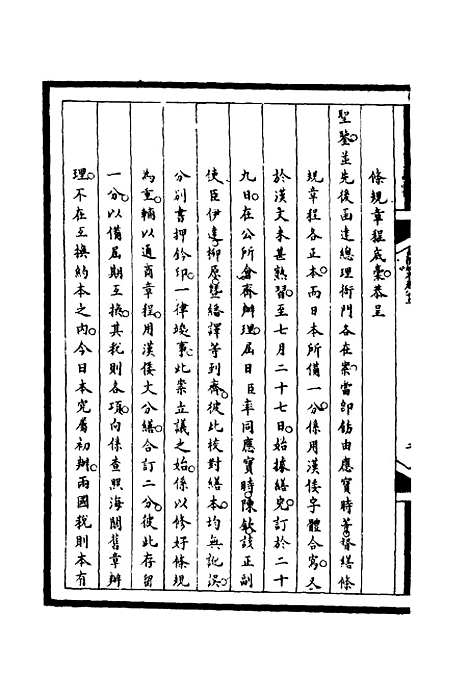 條規章程底稾恭呈
聖鑒並先後函達總理衙門各在案當卽飭由應寶時等督繕條
規章程各正本而日本所備一分係用漢倭字體合寫又
於漢文未甚熟習至七月二十七日始據繕完訂於二十
九日在公所會齊辦理屆日臣率同應寶時陳欽該正副
使臣伊達柳原曁繙譯等到齊彼此校對繕本均無訛誤
分別書押鈐印一律竣事此案立議之始係以修好條規
為重輔以通商章程用漢倭文分繕合訂二分彼此存留
一分以備屆期互換其稅則各項向係查照海關舊章辦
理不在互換約本之內今日本究屬初辦兩國稅則本有